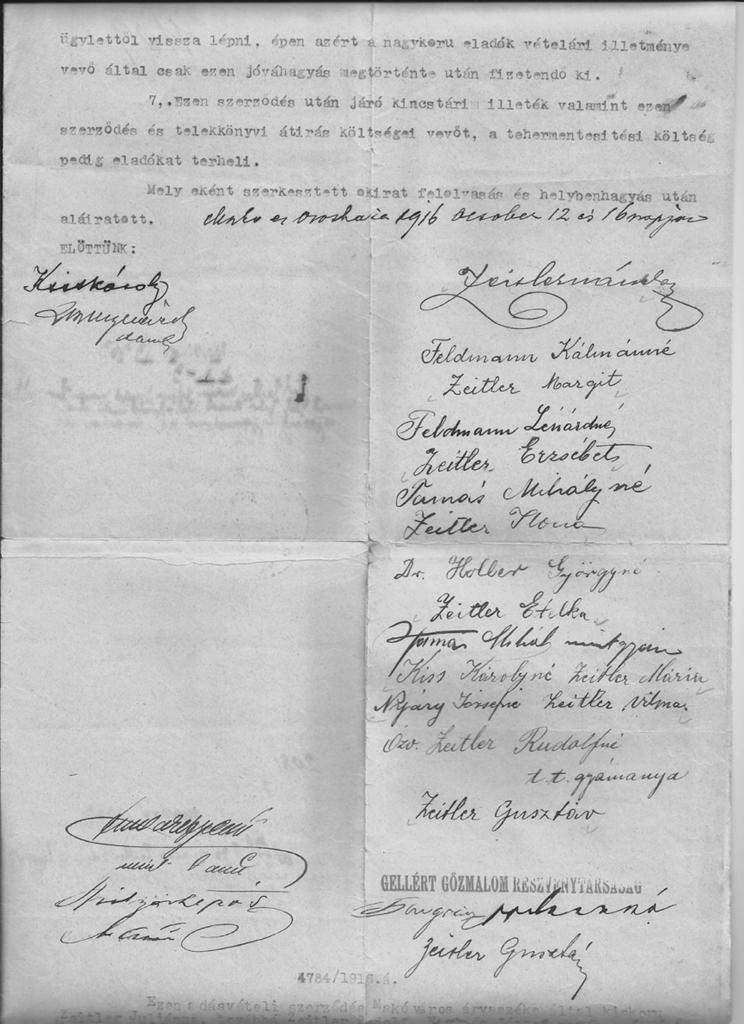 ügylettöl vissza lépni, épen azért a nagykoru eladók vételári illetménye
vevö által csak ezen jóváhagyás megtörténte után fizetendö ki.
7,.Ezen szerzödés után járó kincstári illeték valamint ezen
szerzödés és telekkönyvi átirás költségei vevöt, a tehermentesitési költség
pedig eladókat terheli.
Mely eként szerkesztett okirat felolvasás és helybenhagyás után
aláiratott. Makó és Orosháza 1916 October 12 és 16 napján
ELÖTTÜNK:
Kiss Károly
Feldmann Kálmánné
Zeitler Margit
Feldmann Lénárdné
Zeitler Erzsébet
Tamás Mihályné
Zeitler Ilona
Dr. Holler Györgyné
Zeitler Etelka
Tamás Mihály mint gyám
Kiss Károlyné Zeitler Mária
Nyáry Józsefné Zeitler Vilma
Özv. Zeitler Rudolfné
t.t. gyámanya
Zeitler Gusztáv
mint tanú
GELLÉRT GŐZMALOM RÉSZVÉNYTÁRSASÁG
Zeitler Gusztáv
4784/1916.á.
Ezen adásvételi szerzödés Makóváros árvaszéke által kiskoru